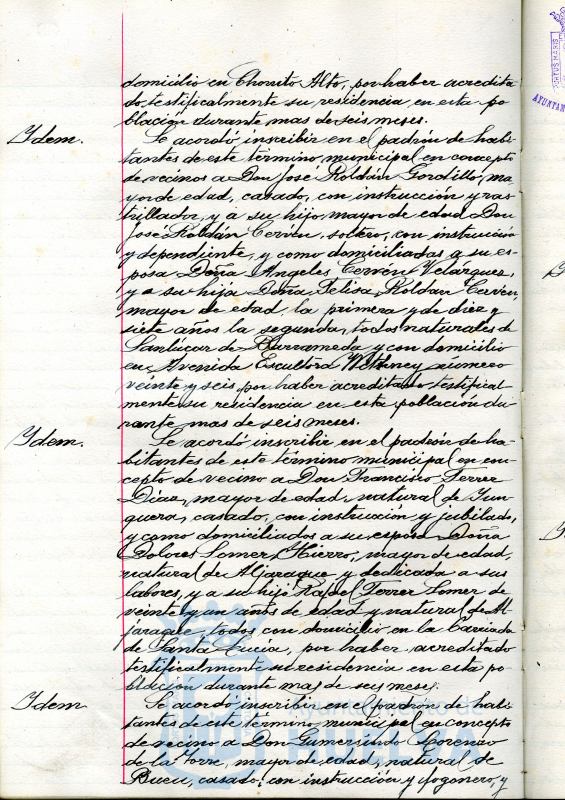 domicilio en Chorrito Alto, por haber acredita
do testificalmente su residencia en esta po
blación durante mas de seis meses.
Idem.
Se acordó inscribir en el padrón de habi-
tantes de este término municipal en concepto
de vecinos a Don José Roldán Gordillo, ma-
yor de edad, casado, con instrucción y ras-
trillador, y a su hijo, mayor de edad Don
José Roldán Cervén, soltero, con instrucción
y dependiente, y como domiciliadas a su es-
posa Doña Angeles Cervén Velazquez,
y a su hija Doña Felisa Roldán Cerven,
mayor de edad, la primera y de diez y
siete años la segunda, todos naturales de
Sanlúcar de Barrameda y con domicilio
en Avenida Escultora Whitney número
veinte y seis, por haber acreditado testifical-
mente su residencia en esta población du-
rante mas de seis meses.
Idem.
Se acordó inscribir en el padrón de ha-
bitantes de este término municipal en con-
cepto de vecino a Don Francisco Ferrer
Diaz, mayor de edad, natural de Yun-
quera, casado, con instrucción y jubilado,
y como domiciliados a su esposa Doña
Dolores Hierro, mayor de edad,
natural de Aljaraque y dedicada a sus
labores, y a su hijo Rafael Ferrer de
veinte y un años de edad y natural de Al
jaraque, todos con domicilio en la Barriada
de Santa Lucia, por haber acreditado
testificalmente su residencia en esta po-
blación durante mas de seis meses.
Idem.
Se acordó inscribir en el padrón de habi-
tantes de este término municipal en concepto
de vecino a Don Gumersindo Lorenzo
de la Torre, mayor de edad, natural de
Bueu, casado, con instrucción y fogonero, y
PORTUS MARIS
AYUNTAM
HUELVA